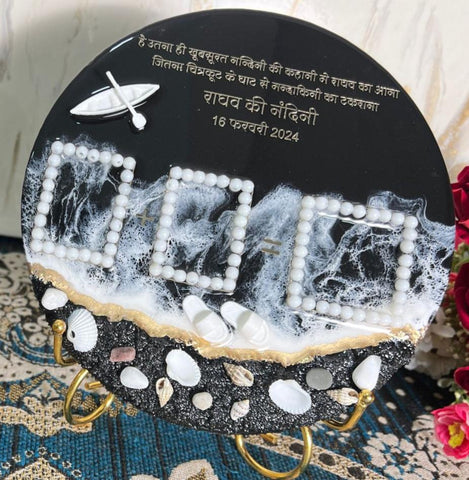 है उतना ही खूबसूरत नन्दिनी की कहानी में राघव का आना
जितना चित्रकूट के घाट से मन्दाकिनी का टकराना
राघव की नंदिनी
16 फरवरी 2024